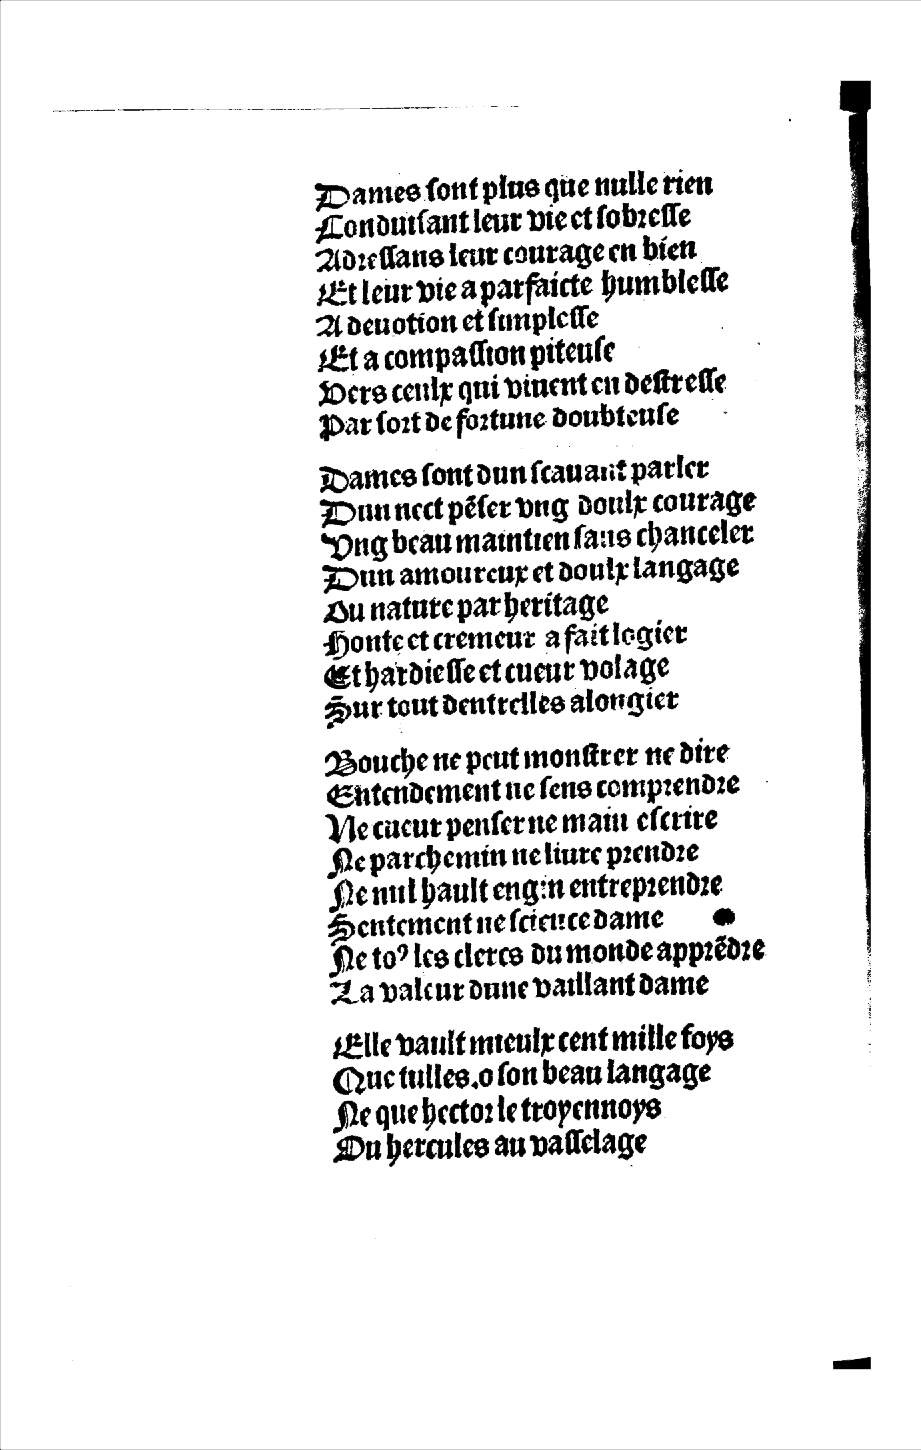 Dames sont plus que nulle rien
Conduisant leur vie et sobresse
Adressans leur courage en bien
Et leur vie a parfaicte humblesse
A deuotion et simplesse
Et a compassion piteuse
Vers ceulx qui viuent en destresse
Par sort de fortune doubteuse
Dames sont dun scauant parler
Dun nect pẽser vng doulx courage
Vng beau maintien sans chanceler
Dun amoureux et doulx langage
Ou nature par heritage
Honte et cremeur a fait logier
Et hardiesse et cueur volage
Sur tout dentrelles alongier
Bouche ne peut monstrer ne dire
Entendement ne sens comprendre
Ne cueur penser ne main escrire
Ne parchemin ne liure prendre
Ne nul hault engin entreprendre
Sentement ne science dame
Ne toꝰ les clercs du monde apprẽdre
La valeur dune vaillant dame
Elle vault mieulx cent mille foys
Que tulles.o son beau langage
Ne que hector le troyennoys
Ou hercules au vasselage